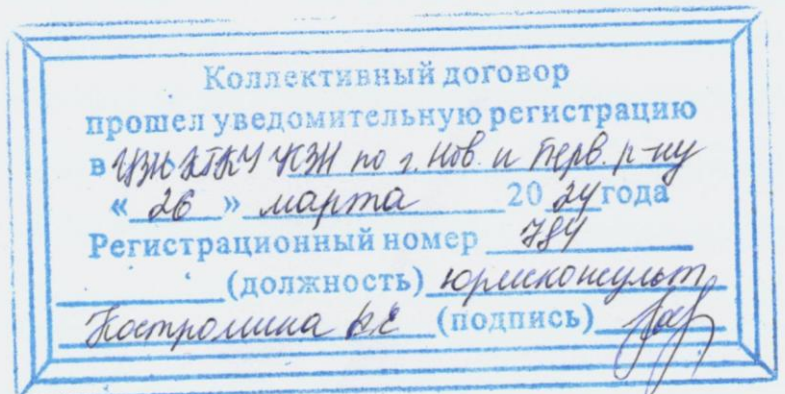 Коллективный договор
прошел уведомительную регистрацию
в ЦЗН КГКУ КЗН по г. Нов. и Перв. р-ну
« 26 » марта 20 24 года
Регистрационный номер 784
(должность) юрисконсульт
Костромина В.Е (подпись)